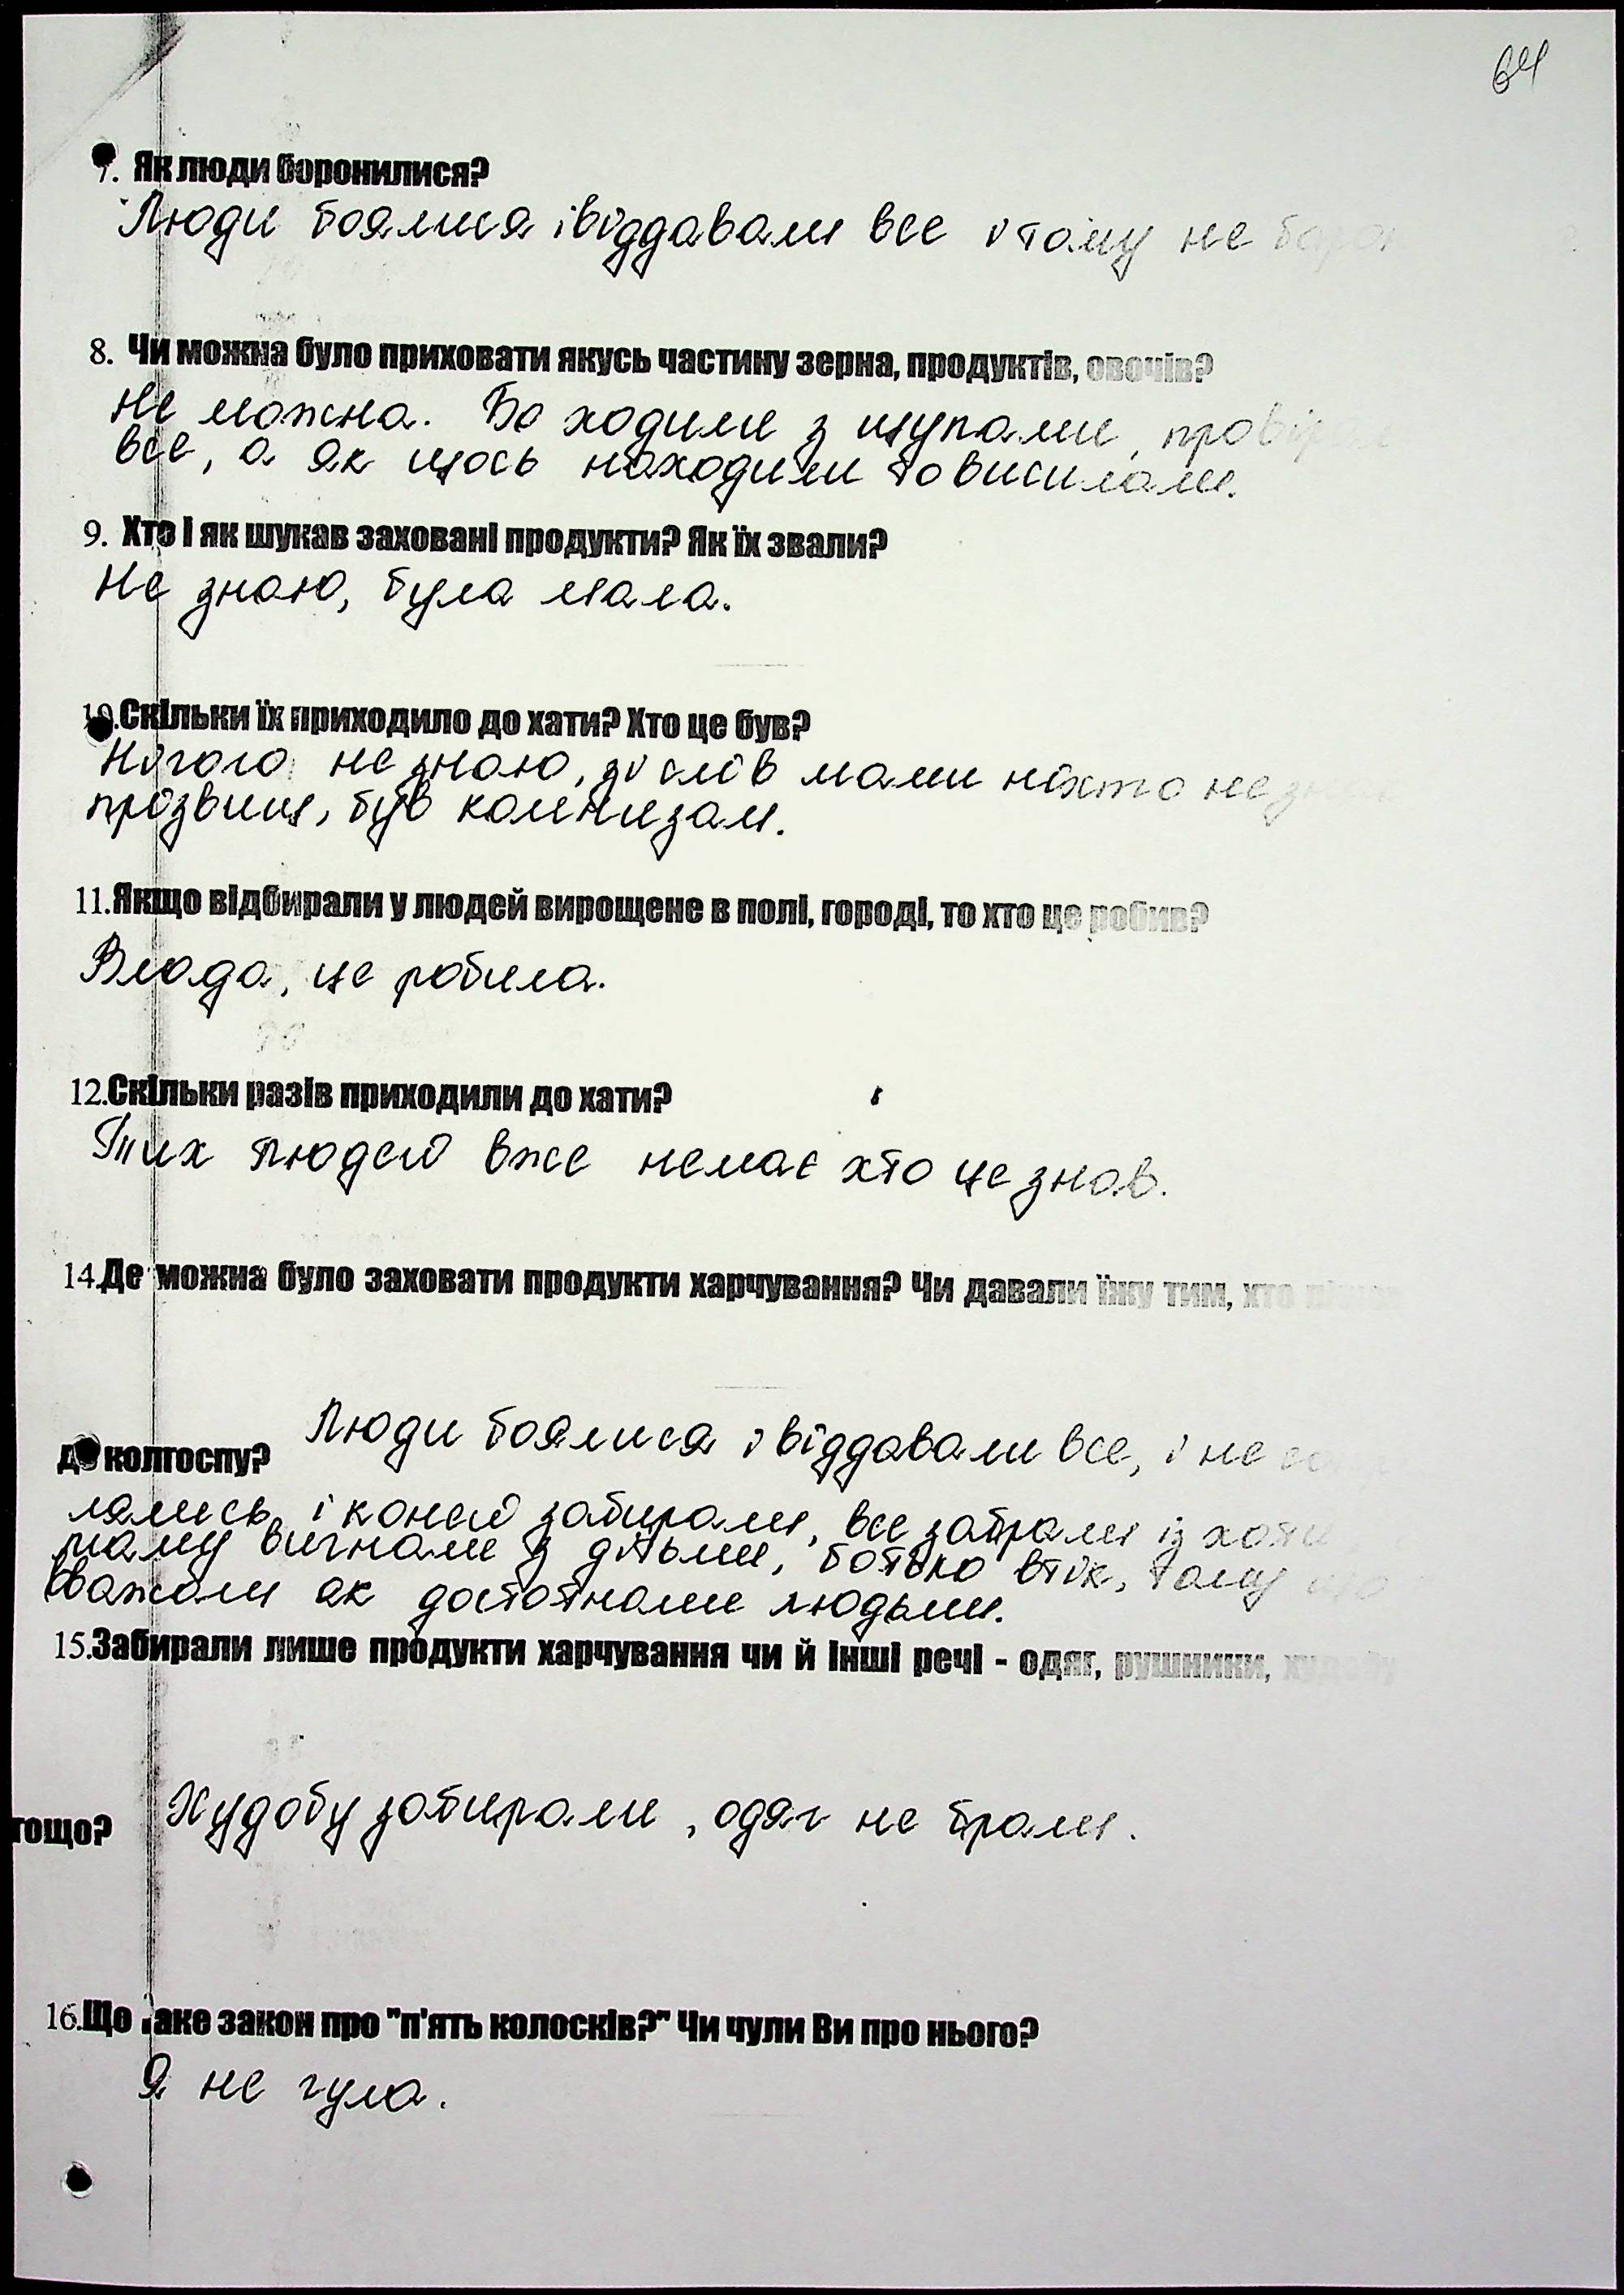 64
7. Як люди боронилися?
Люди боялися і віддавали все і тому не
8. Чи можна було приховати якусь частину зерна, продуктів, овочів?
Не можна. Бо ходили з щупами,
все, а як щось находили то висилали.
9. Хто і як шукав заховані продукти? Як їх звали?
Не знаю, була мала.
10.Скільки їх приходило до хати? Хто це був?
Нічого не знаю, зі слів мами ніхто не
прізвищ, був комнизам.
11.Якщо відбирали у людей вирощене в полі, городі, то хто це робив?
Влада, це робила.
12.Скільки разів приходили до хати?
Тих людей вже немає хто це знав.
14.Де можна було заховати продукти харчування? Чи давали їжу тим, хто
до колгоспу? Люди боялися і віддавали все, і не
лялись, і коней забирали, все забрали із хати
маму вигнали з дітьми, батько втік, тому що
вважали як достатнами людьми.
15.Забирали лише продукти харчування чи й інші речі - одяг, рушники, худобу
тощо? Худобу забирали, одяг не брали.
16.Що таке закон про "п'ять колосків?" Чи чули Ви про нього?
Я не чула.